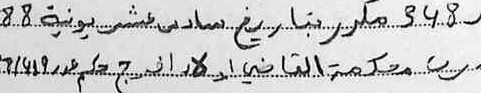 348 مكرر بتاريخ سادس عشر يونية 88
محكمة القاضي أولاد افرج حكم عدد